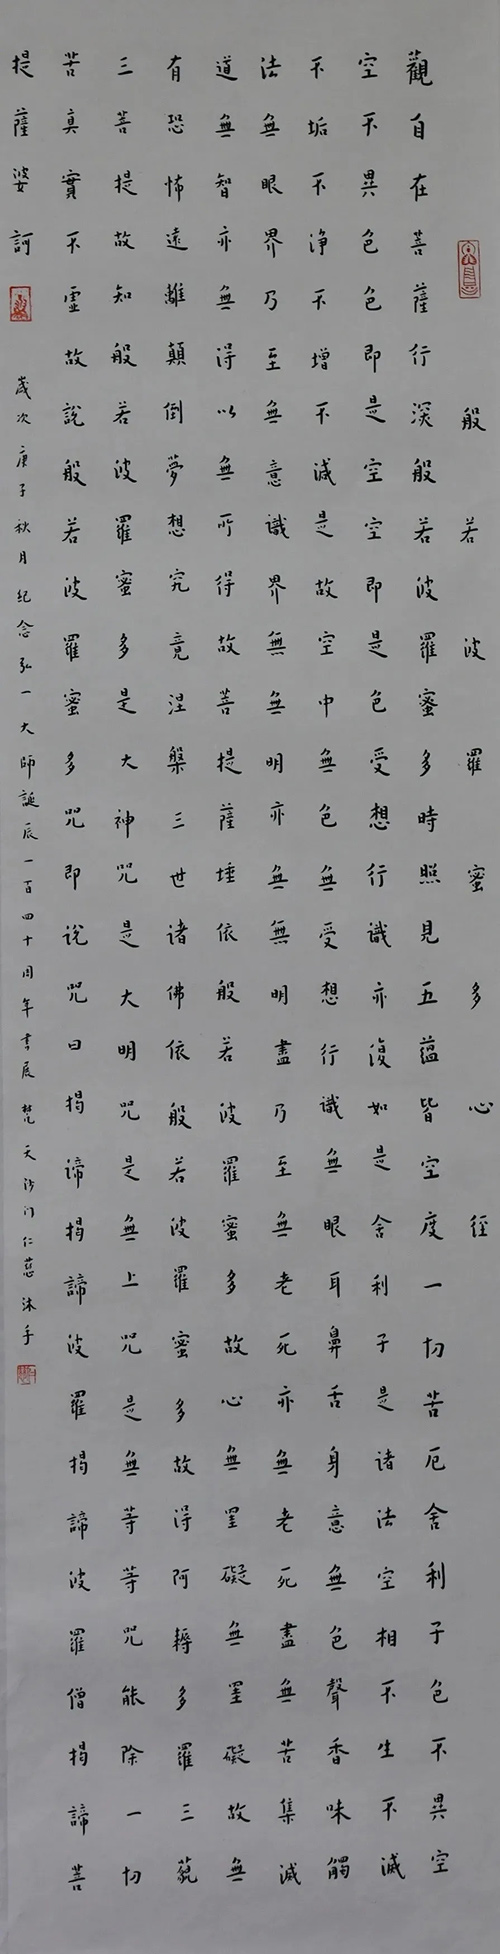 般若波羅蜜多心径
觀自在菩薩行深般若波羅蜜多時照見五蘊皆空度一切苦厄舍利子色不異空
空不異色色即是空空即是色受想行識亦復如是舍利子是诸法空相不生不滅
不垢不净不增不减是故空中無色無受想行識無眼耳鼻舌身意無色聲香味觸
法無眼界乃至無意識界無無明亦無無明盡乃至無老死亦無老死盡無苦集滅
道無智亦無得以無所得故菩提薩埵依般若波羅蜜多故心無罣礙無罣礙故無
有恐怖遠離顛倒夢想究竟涅槃三世诸佛依般若波羅蜜多故得阿耨多羅三藐
三菩提故知般若波羅蜜多是大神咒是大明咒是無上咒是無等等咒能除一切
苦真實不虛故說般若波羅蜜多咒即说咒曰揭諦揭諦波羅揭諦波羅僧揭諦菩
提薩婆訶
歲次庚子秋月纪念弘一大師誕辰一百四十周年書展梵天沙门仁慈沐手